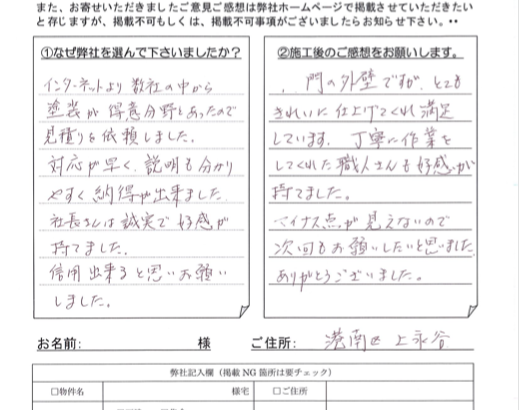 また、お寄せいただきましたご意見ご感想は弊社ホームページで掲載させていただきたい
と存じますが、掲載不可もしくは、掲載不可事項がございましたらお知らせ下さい。••
①なぜ弊社を選んで下さいましたか?
インターネットより数社の中から
塗装が得意分野とあったので
見積りを依頼しました。
対応が早く、説明も分かり
やすく納得が出来ました。
社長さんは誠実で好感が
持てました。
信用出来ると思いお願い
しました。
②施工後のご感想をお願いします。
門の外壁ですが、とても
きれいに仕上げてくれ満足
しています。丁寧に作業を
してくれた職人さんも好感が
持てました。
マイナス点が見えないので
次回もお願いしたいと思いました
ありがとうございました。
お名前: 様 ご住所: 港南区 上永谷
弊社記入欄(掲載 NG 箇所は要チェック)
□物件名 様宅 □ご住所